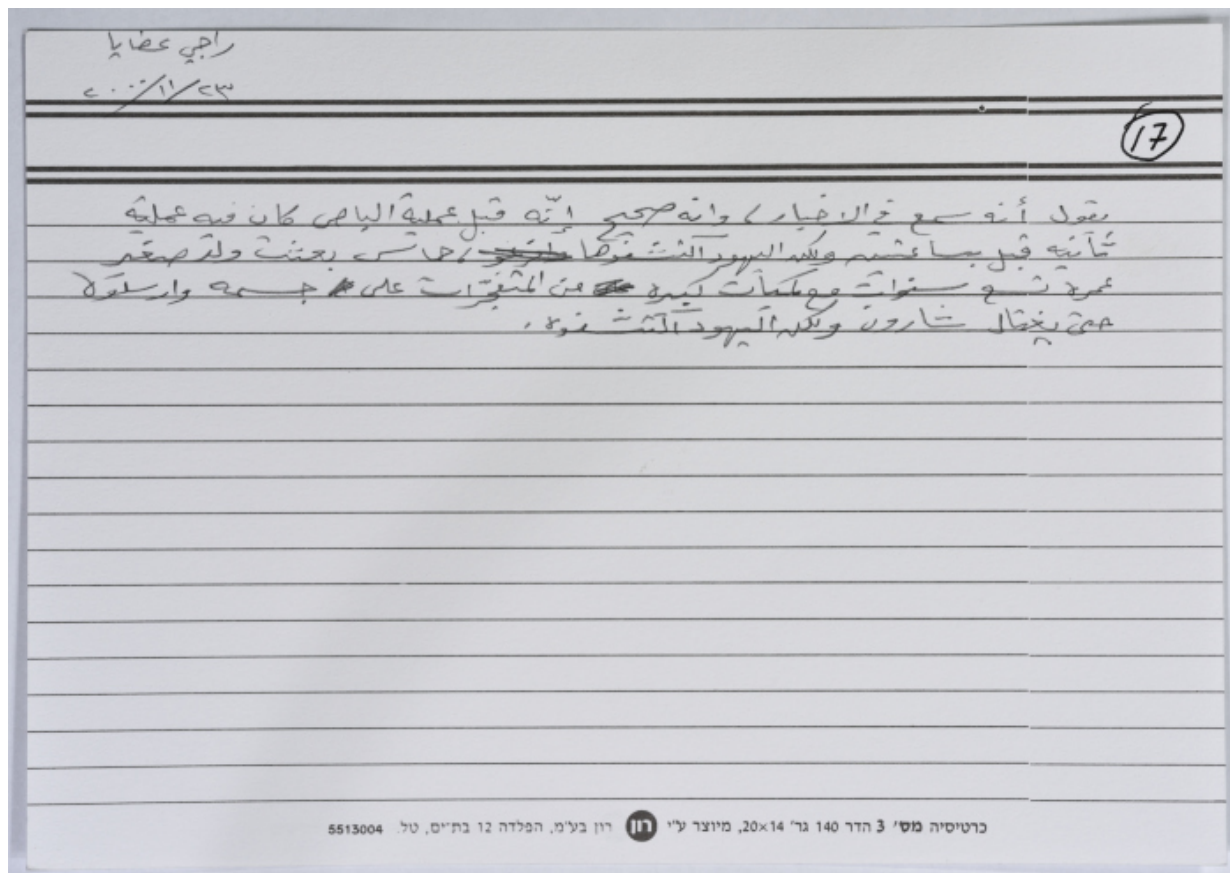 راجي عطايا
٢٠٠٠/١١/٢٣
17
يقول أنه سمع في الاخبار، وانه صحيح إنّه قبل عملية الباص كان فيه عملية
ثانية قبل بساعتين ولكن اليهود اكتشفوها، حماس بعثت ولد صغير
عمره تسع سنوات مع كميات كبيرة من المتفجّرات على جسمه وارسلوه
حتى يغتال شارون ولكن اليهود اكتشفوه.
כרטיסיה מס׳ 3 הדר 140 גר׳ 20×14, מיוצר ע״י רון רון בע״מ, הפלדה 12 בת־ים, טל. 5513004